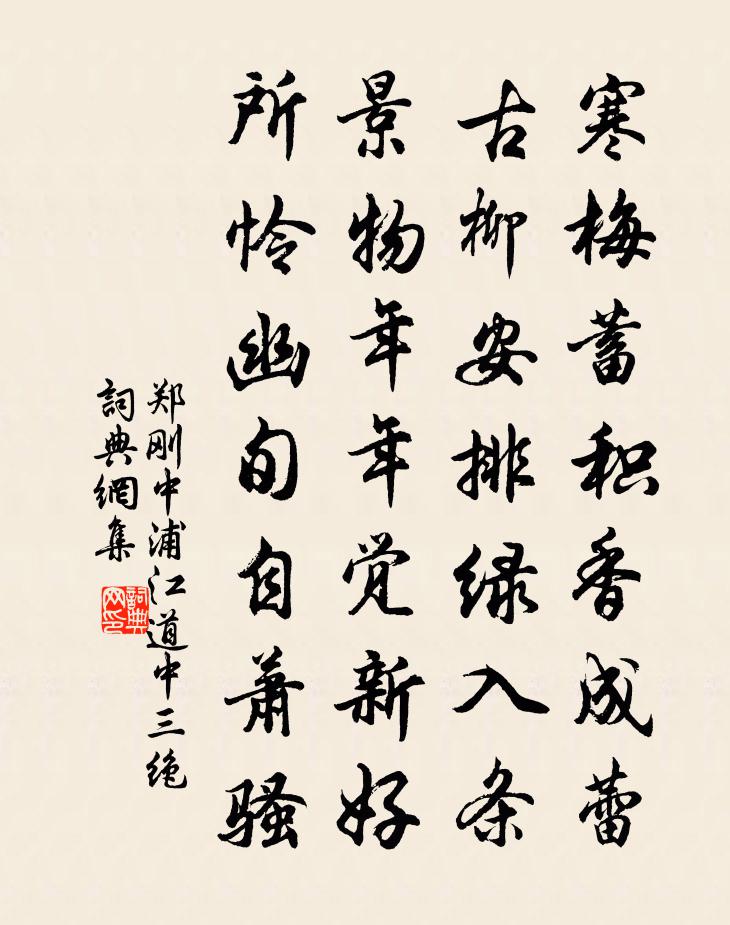 寒梅蓄积香成蕾
古柳安排绿入条
景物年年觉新好
所怜幽旬自萧骚
郑刚中浦江道中三绝
詞典網集
詞典
网印